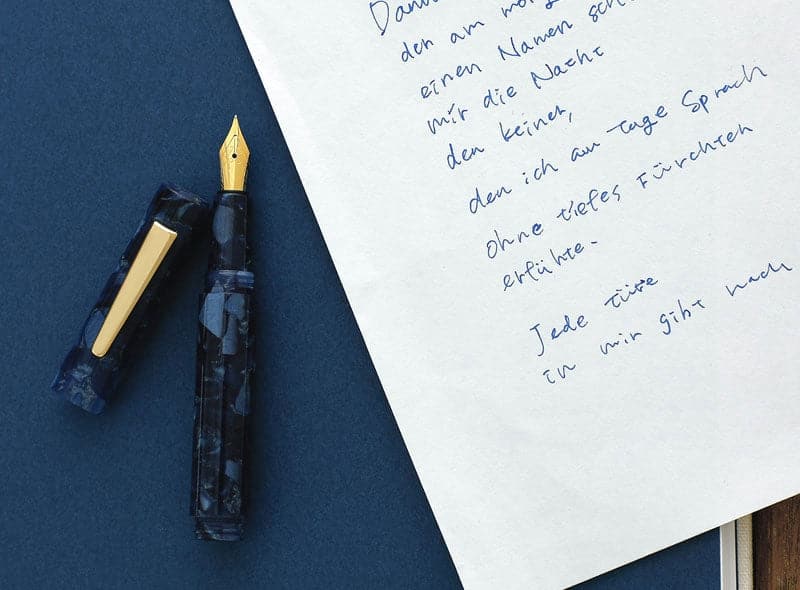 den am
einen Namen
mir die Nacht
den keiner,
den ich am tage Sprach
ohne tiefes Fürchten
erfühte.
Jede türe
in mir gibt nach